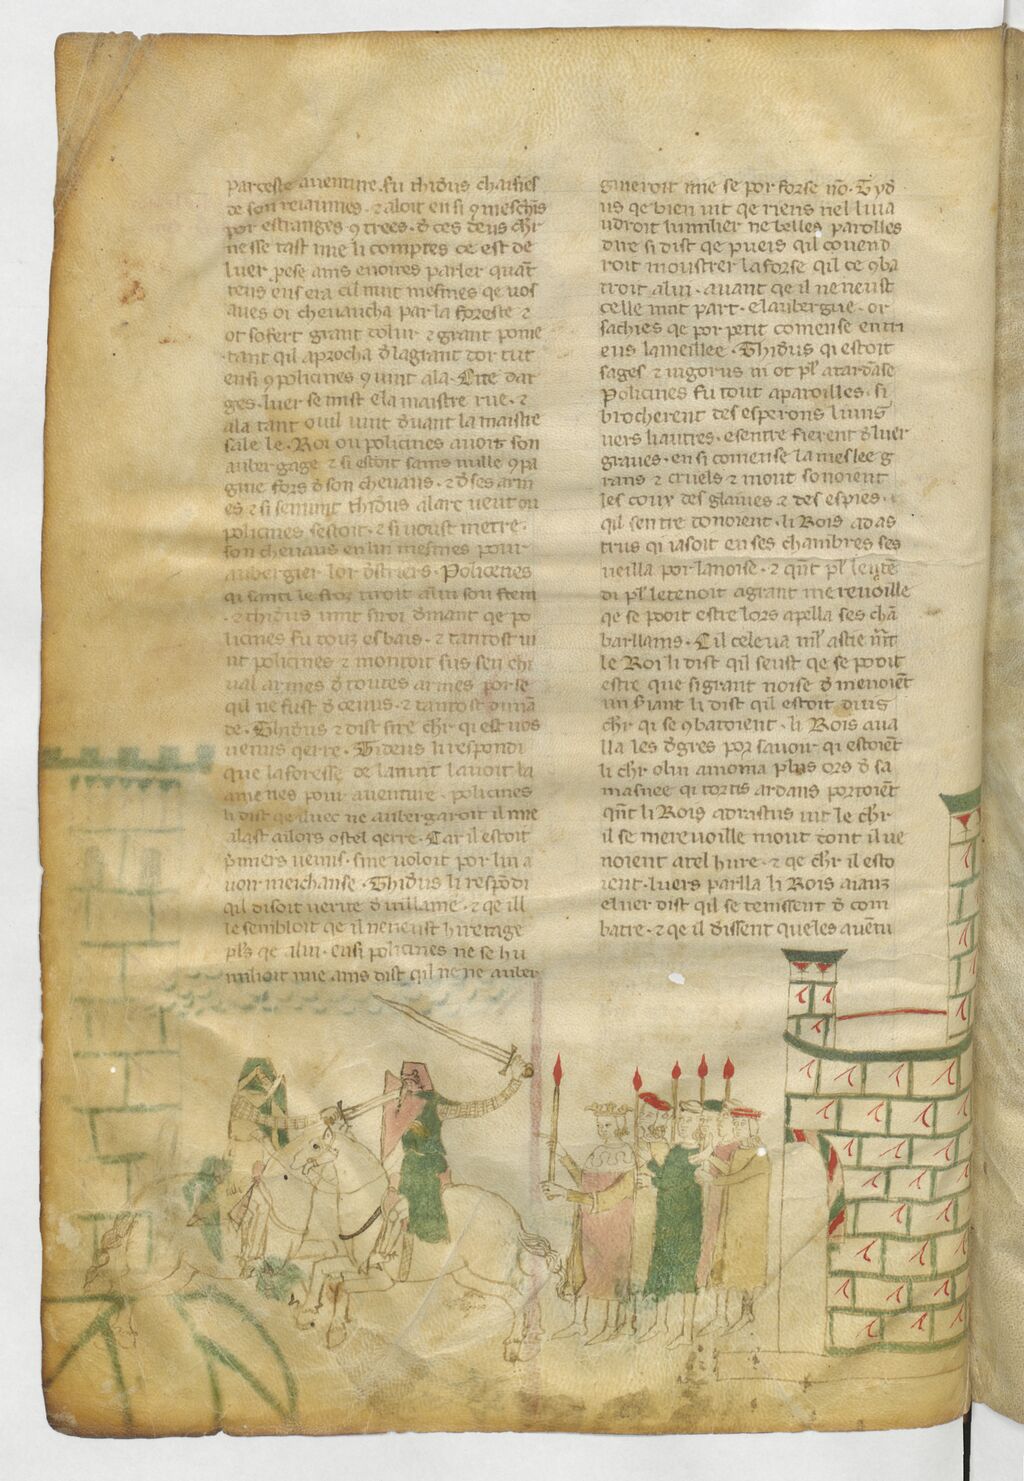 par ceste auenture. fu thideus chaisies
de son reiaumes. ⁊ aloit ensi ꝯ meschins
por estranges ꝯtrees. đ ces deus chr̄
nesse tast mie li comptes ce est de
luer pese ams enoires parler quat̄
tens ensera cil nuit mesmes qe vos
aues oi cheuaucha par la foreste ⁊
ot sofert grant dolur ⁊ grant poine
tant qil aprocha đ lagrant tor tut
ensi ꝯ policines ꝯ uint ala. Cite dar
ges. luer se mist ela maistre rue. ⁊
ala tant ouil uint đuant la maistre
sale le. Roi ou policines auoit son
aubergage ⁊ si estoit sains nulle ꝯpa
gnie fors đ son cheuaus. ⁊ đ ses arm
es ⁊ si semint thideus alarc ueut ou
policines sestoit. ⁊ si uoust metre.
son cheuaus en lin mesmes pour
aubergier lor đstriers. Policenes
qi
⁊ thideus đmant qe po
licines fu touz esbais. ⁊ tantost ui
nt policines ⁊ montoit sus sen chi
ual armes đ toutes armes por se
qil ne fust đ ceuus. ⁊ tantost đmā
de. Thiđus ⁊ dist sire chr̄ qi est uos
uenus qerre. Tideus li respondi
que la foresse de lanuit lauoit la
amenes pour auenture. policines
li dist qe iluec ne aubergaroit il mie
alast ailors ostel qerre. Car il estoit
pmiers uenus. sine uoloit por lui a
uoir meichanse. Thiđus li respōdi
qil disoit uerite đ uillanie. ⁊ qe ill
le sembloit qe il neneust hiretage
plus qe alui. ensi policines ne se hu
milioit mie ams dist qil ne ne auber
gneroit mie se por forse nō. Tyđ
us qe bien uit qe riens nel liua
udroit humilier ne belles parolles
dire si dist qe pueis qil couend
roit moustrer la forse qil ce ꝯba
troit alui. auant qe il ne neust
celle nuit part. el aubergue. or
sachies qe por petit comense entr
eus la meillee. Thiđus qi estoit
sages ⁊ uigorus ni ot pl' atardāse
Policines fu tout aparoilles. si
brocherent des esperons liuns
uers li autres. e sentre fierent đluer
graues. ensi comense la meslee g
rans ⁊ cruels ⁊ mout sonoient
les coux des glaiues ⁊ des espies.
qil sentre donoient. li Rois adas
trus qi iasoit en ses chambres ses
ueilla por la noise. ⁊ qn̄t pl'
di pl' letenoit a grant mereuoille
qe se pooit estre lors apella ses chā
barllams. Cil celeua
le Roi li dist qil seust qe se pooit
estre que si grant noise đ menoiēt
un siant li dist qil estoit diuis
chr̄ qi se ꝯbatoient. li Rois aua
lla les đgres por sauoir qi estoiēt
li chr̄ olui amoma plus ors đ sa
masnee qi tortis ardans portoiēt
qn̄t li Rois adrastus uit le chr̄
il se mereuoille mout dont il ue
noient atel hure. ⁊ qe chr̄ il esto
ient. luers parlla li Rois aianz
eluer dist qil se tenissent đ com
batre. ⁊ qe il đissent queles auētu